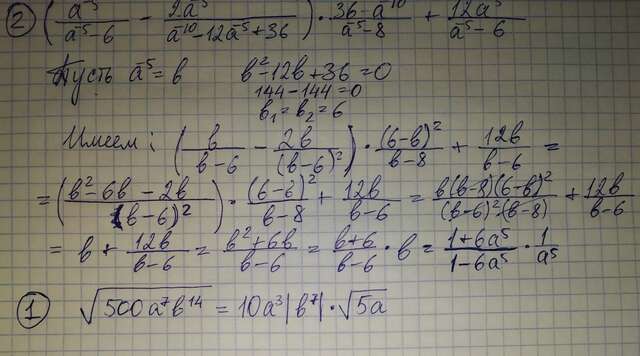 ② (a⁻⁵/(a⁻⁵-6) - 2a⁻⁵/(a⁻¹⁰-12a⁻⁵+36)) · (36-a⁻¹⁰)/(a⁻⁵-8) + 12a⁻⁵/(a⁻⁵-6)
Пусть a⁻⁵=b b²-12b+36=0
144-144=0
b₁=b₂=6
Имеем: (b/(b-6) - 2b/(b-6)²) · (6-b)²/(b-8) + 12b/(b-6) =
= ((b²-6b-2b)/(b-6)²) · (6-b)²/(b-8) + 12b/(b-6) = b(b-8)(6-b)²/((b-6)²(b-8)) + 12b/(b-6)
= b + 12b/(b-6) = (b²+6b)/(b-6) = (b+6)/(b-6) · b = (1+6a⁵)/(1-6a⁵) · 1/a⁵
① √(500a⁷b¹⁴) = 10a³|b⁷|·√(5a)